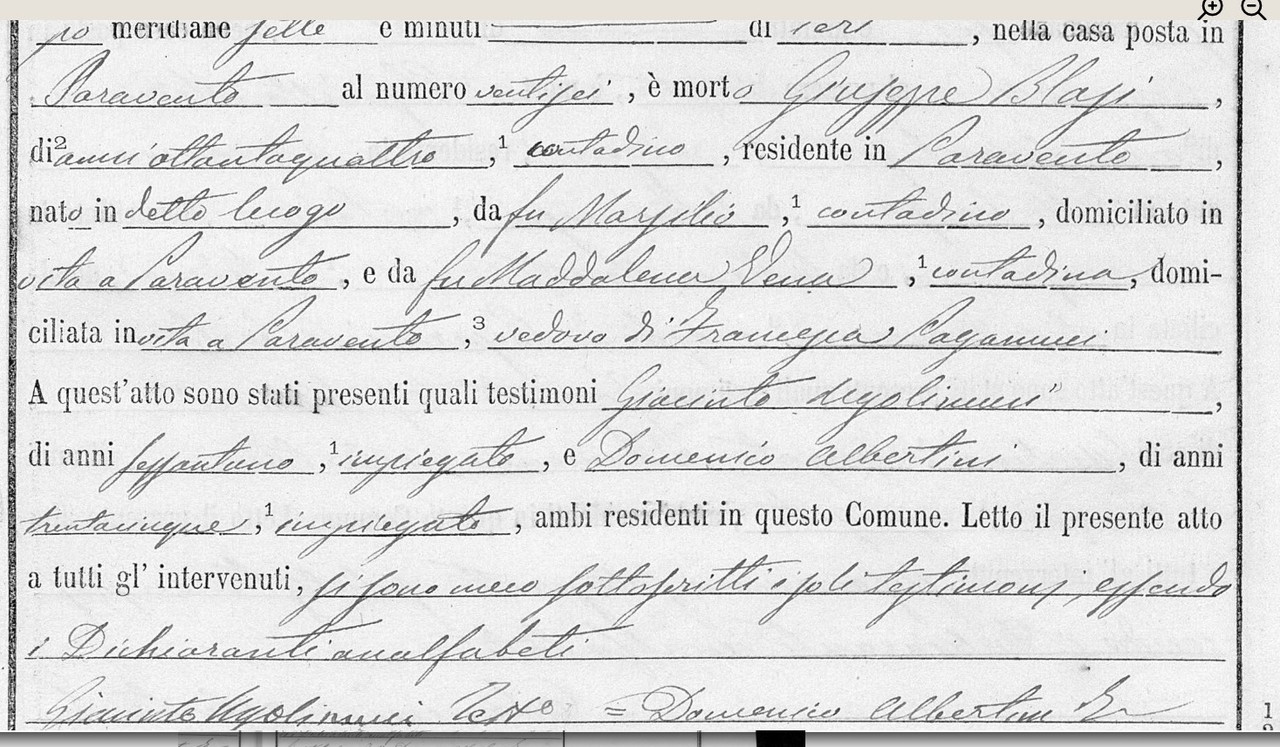 po meridiane sette e minuti di ieri, nella casa posta in
Paravento al numero ventisei, è morto Giuseppe Blasi,
di² anni ottantaquattro,¹ contadino, residente in Paravento,
nato in detto luogo, da fu Marsilio,¹ contadino, domiciliato in
vita a Paravento, e da fu Maddalena Vena,¹ contadina, domi-
ciliata in vita a Paravento,³ vedovo di Francesca Paganucci
A quest'atto sono stati presenti quali testimoni Giacinto Ugolinucci,
di anni sessantuno,¹ impiegato, e Domenico Albertini, di anni
trentacinque,¹ impiegato, ambi residenti in questo Comune. Letto il presente atto
a tutti gl' intervenuti, si sono meco sottoscritti i soli testimoni, essendo
i Dichiaranti analfabeti
Giacinto Ugolinucci = Domenico Albertini